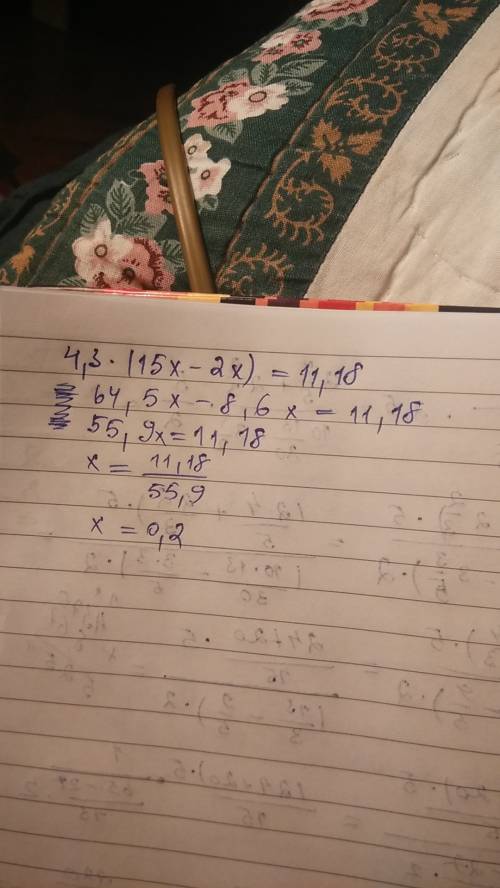 4,3 · (15x - 2x) = 11,18
64,5x - 8,6x = 11,18
55,9x = 11,18
x = 11,18 / 55,9
x = 0,2